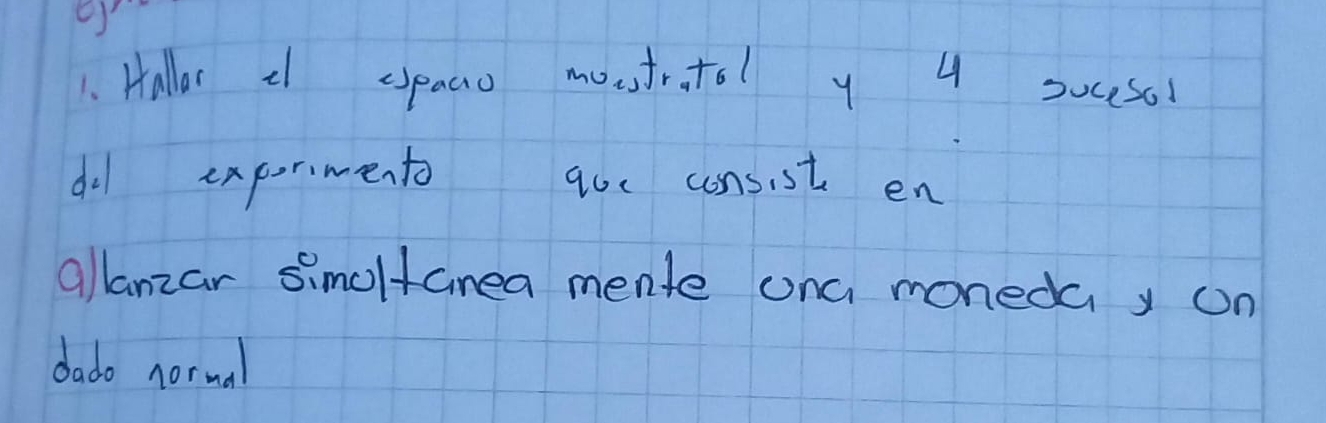 Ej
1. Hallar el espacio muestral y 4 sucesos
del experimento que consiste en
a) lanzar simultanea mente una moneda y un
dado normal